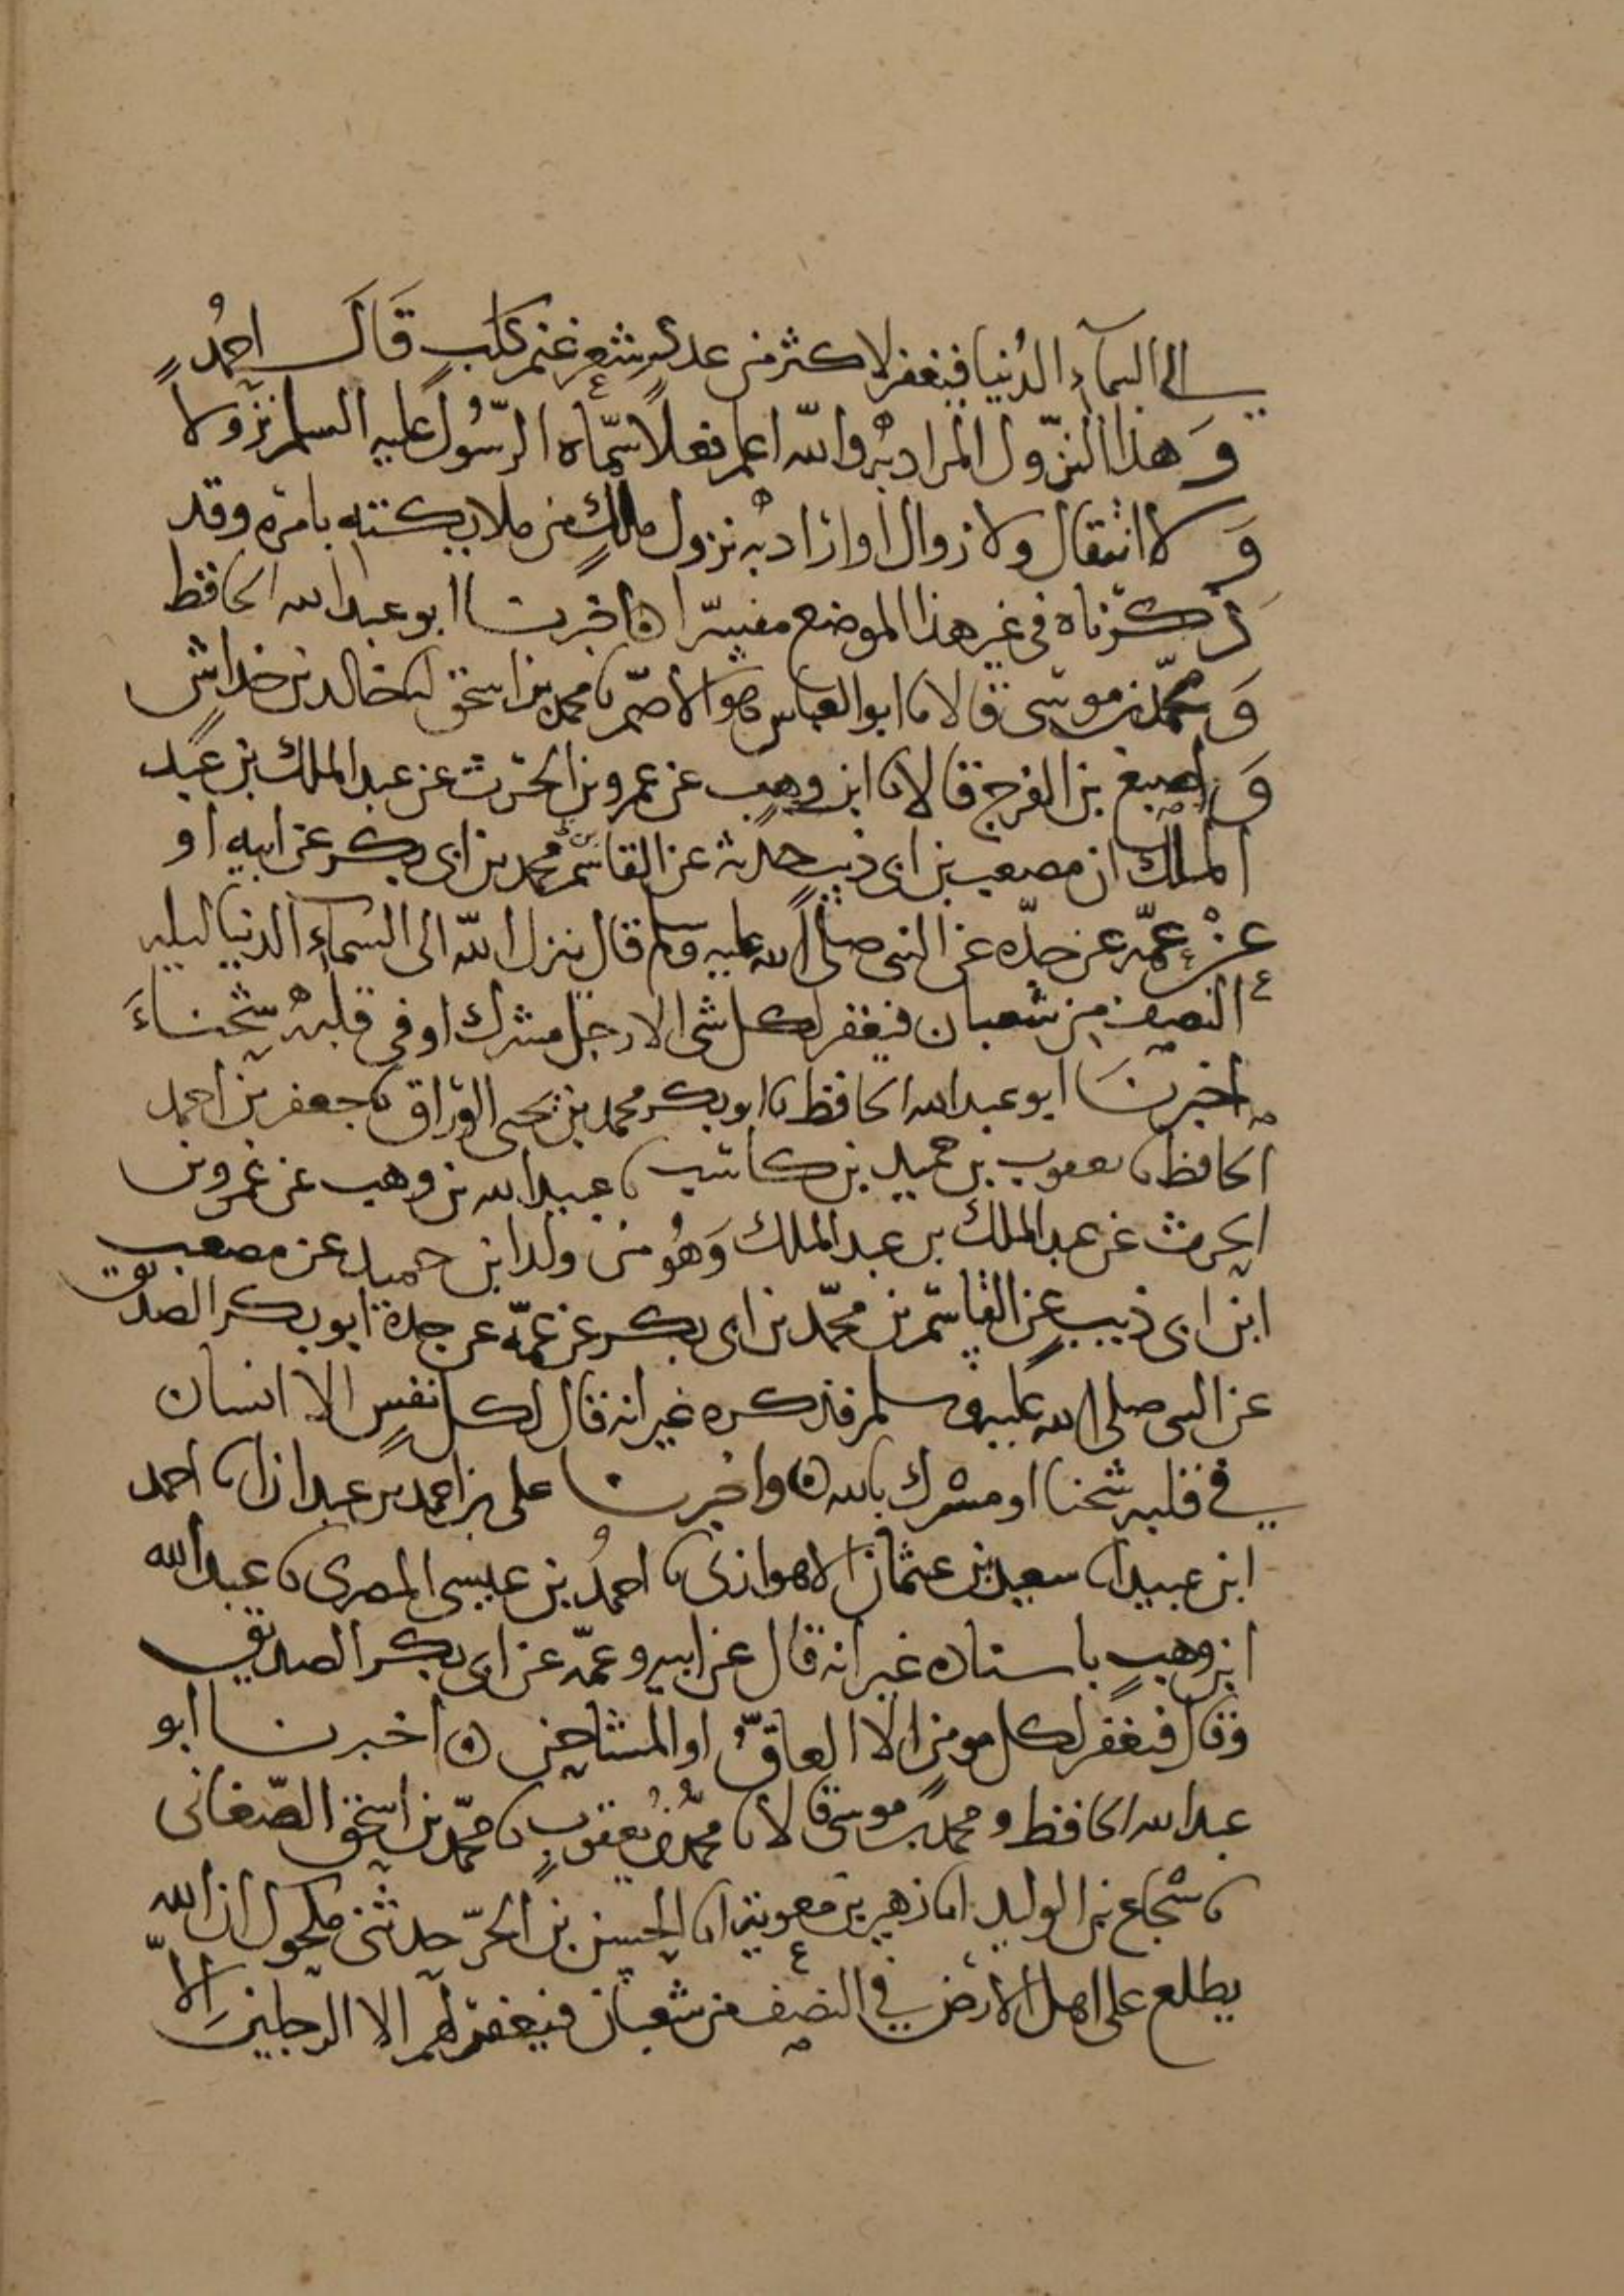 الى السماء الدُنيا فيغفر لاكثر من عدد شعر غنم كلبٍ قَالَ احمدُ
وَهذا النزّول المراد به والله اعلم فعلاً سمّاه الرّسُول عليه السلم نزولا
وَلا انتقال ولا زوال اوارادبه نزول ملكٍ من ملايكته بامره وقد
ذكرناه فى غير هذا الموضع مفسّرا ه اخبرنا ابو عبد الله الحافظ
وَ محمّد بن موسى قالا ما ابو العباس هو الاصمّ ما محمد بن اسحق ما خالد بن خداش
وَ اصبغ بن الفرج قالا ما ابن وهب عن عمرو بن الحرث عن عبد الملك بن عبد
الملك ان مصعب بن ابى ذيب حدثه عن القاسم بن محمد بن ابى بكر عن ابيه او
عنْ عمّه عن جدّه عن النبى صلى الله عليه وسلم قال ينزل الله الى السماءِ الدنيا ليله
النصف من شعبان فيغفر لكل شى الا رجل مشرك او فى قلبه شحناءَ
اخبرنَا ابو عبد الله الحافظ ما ابو بكر محمد بن يحيى الورّاق ما جعفر بن احمد
الحافظ ما يعقوب بن حميد بن كاسب ما عبد الله بن وهب عن عمرو بن
الحرث عن عبد الملك بن عبد الملك وَهُو من ولد ابن حميد عن مصعب
ابن ابى ذيبٍ عن القاسم بن محمّد بن ابى بكر عن عمّه عن جده ابو بكر الصديق
عن النبى صلى الله عليه وسلم فذكره غير انه قال لكل نفسٍ الا انسان
فى قلبه شحنا او مشرك بالله ه واخبرنا على بن احمد بن عبدان اما احمد
ابن عبيد اما سعيد بن عثمان الاهوازى ما احمدُ بن عيسى المصرى ما عبد الله
ابن وهبٍ باسناده غير انه قال عن ابيه وعمّه عن ابى بكر الصديق
وقال فيغفر لكل مومن الا العاقّ او المشاحن ه اخبرنا ابو
عبد الله الحافظ ومحمد بن موسى قالا ما محمّدُ بن يعقوب ما محمّد بن اسحق الصّغانى
ما شجاع بن الوليد اما زهير بن معوية اما الحسن بن الحرّ حدثنى مكحول ان الله
يطلع على اهل الارض فى النصف من شعبان فيغفر لهم الا الرجلين الاّ